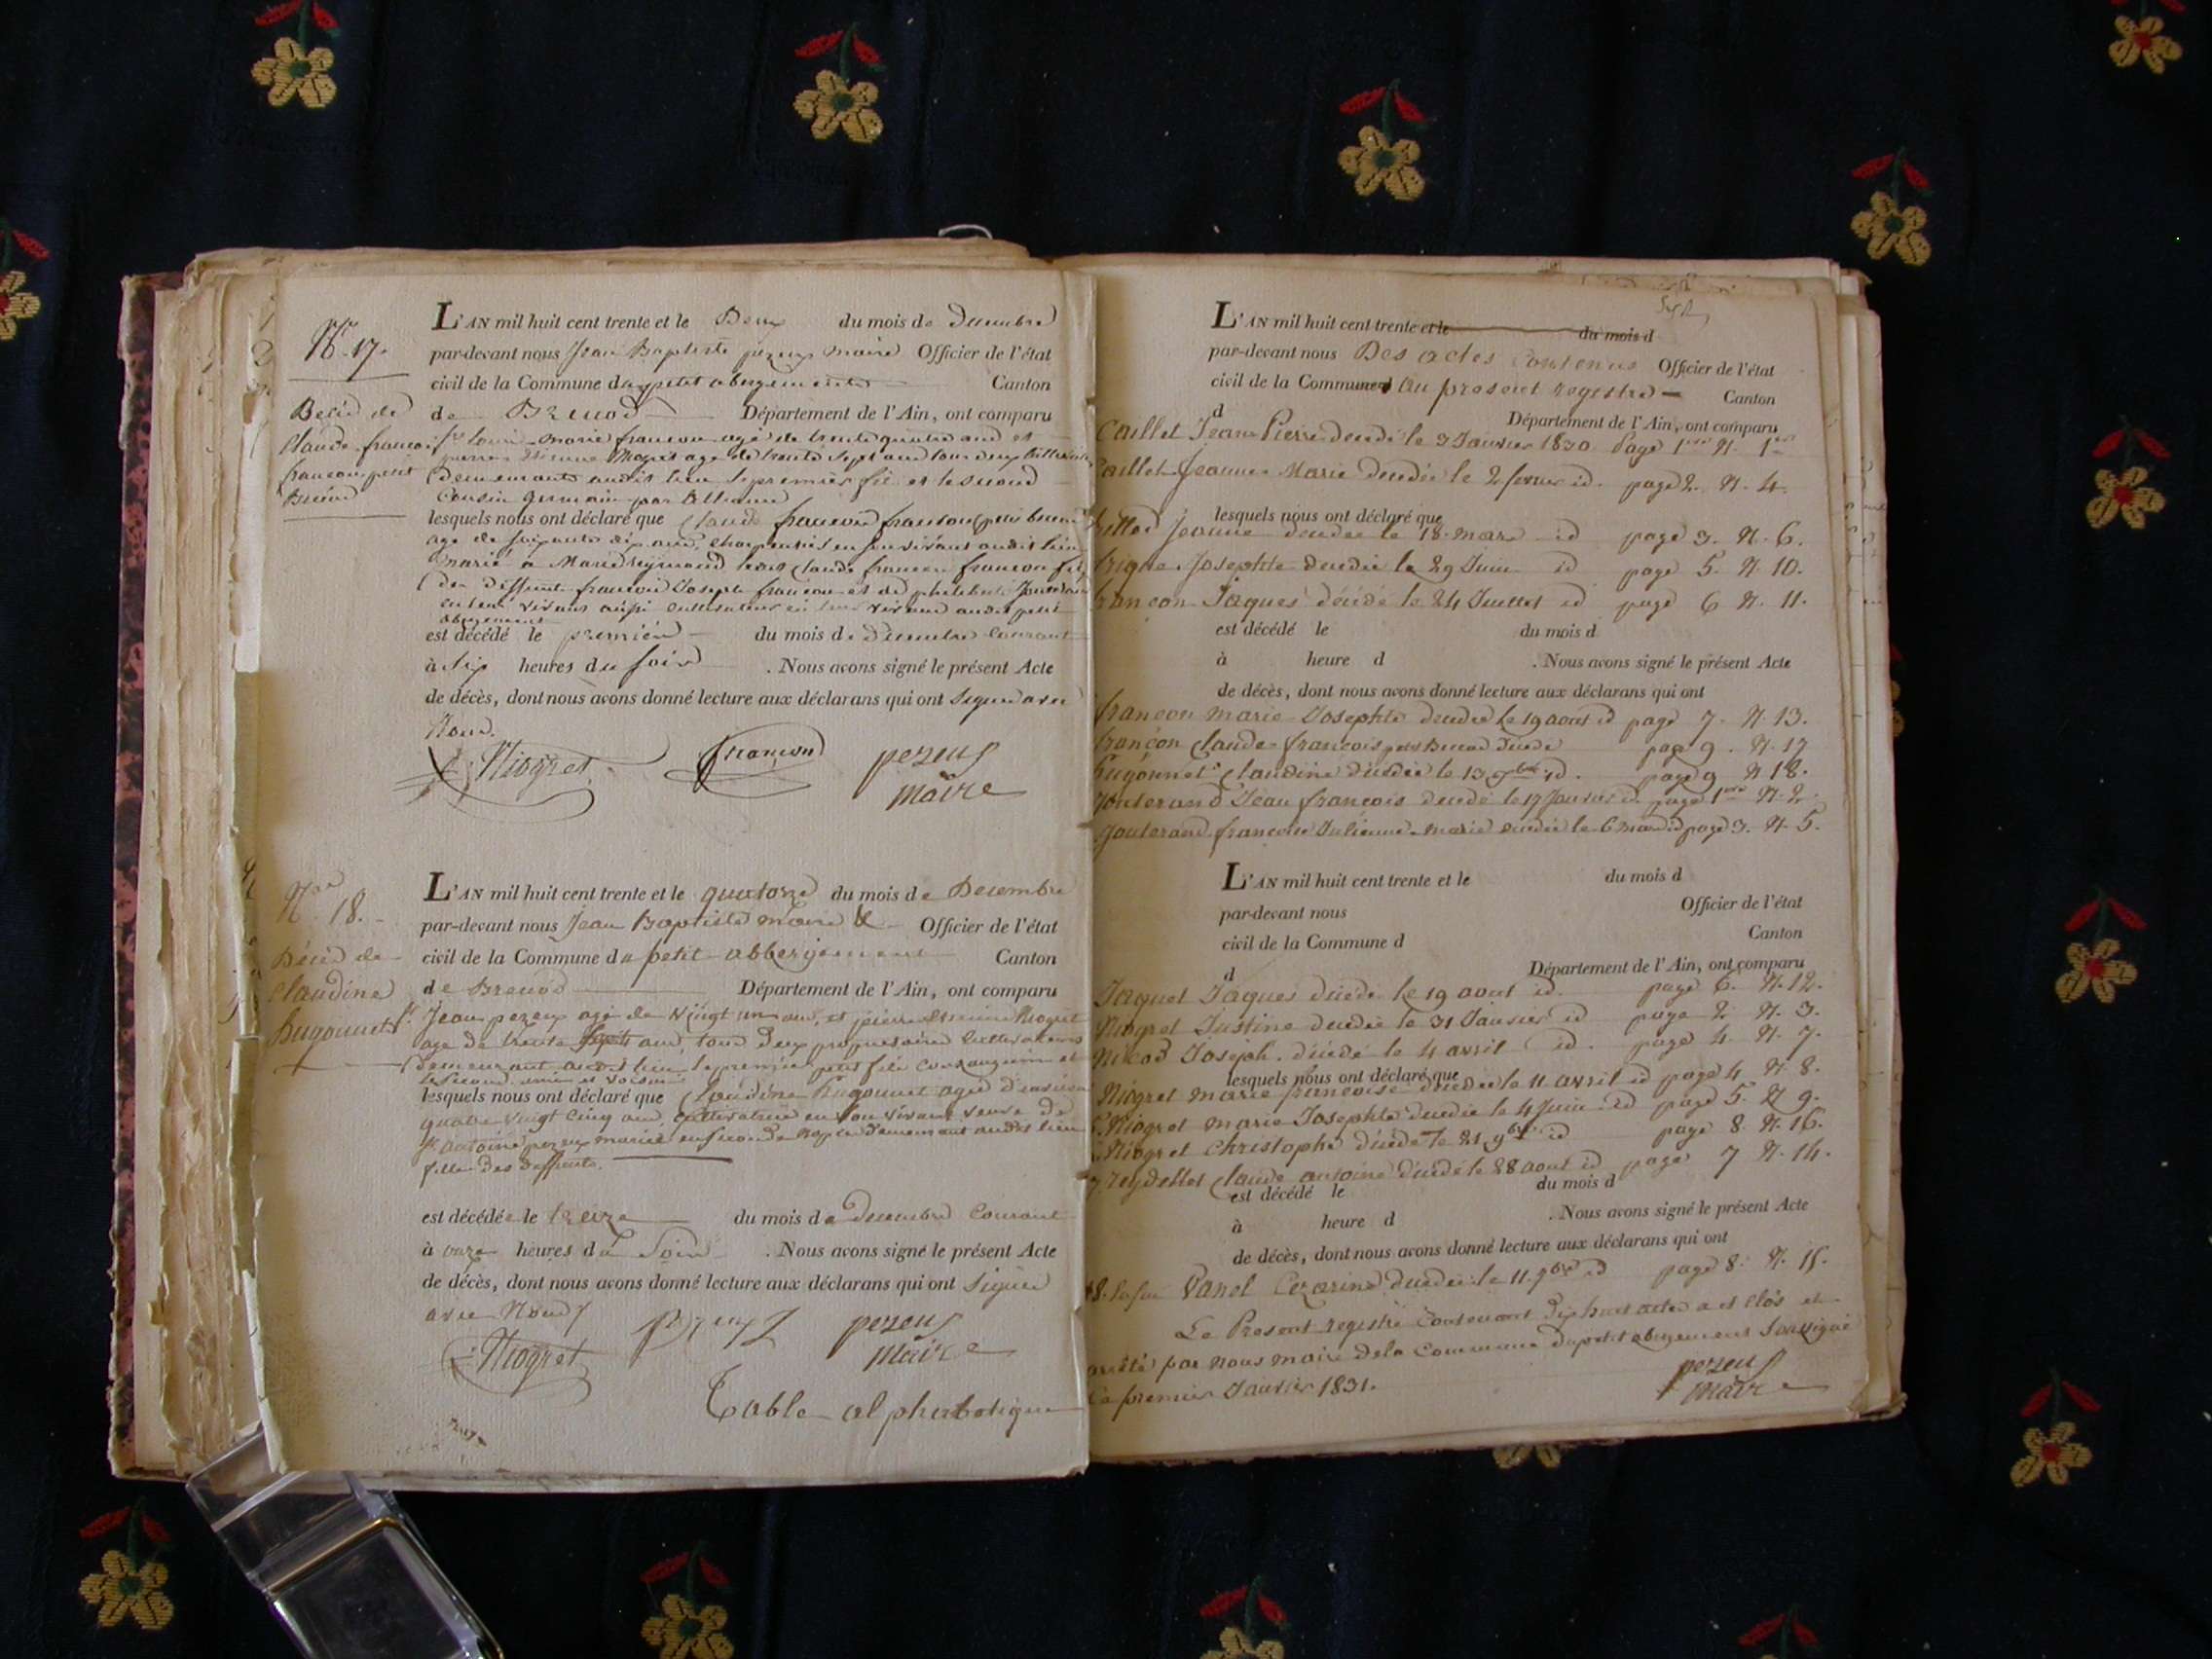 N.º 17.
Décès de
Claude françois
françon petit
L'AN mil huit cent trente et le Deux du mois de Decembre
par-devant nous Jean Baptiste pezeux maire Officier de l'état
civil de la Commune du petit abergement Canton
de Brenod Département de l'Ain, ont comparu
marie françon agé de trente quatre ans et
pierre Etienne Niogret agé de trente sept ans tous deux
demeurants audit lieu le premier fils et le second
Cousin germain par alliance
lesquels nous ont déclaré que Claude françois françon petit
agé de soixante dix ans, charpentier en son vivant audit lieu
marié à Marie feu Claude françon fils
des deffunts françois Joseph françon et de philiberte
en leur vivant aussi cultivateurs en leur vivant audit petit
abergement
est décédé le premier du mois de Decembre courant
à six heures du soir . Nous avons signé le présent Acte
de décès, dont nous avons donné lecture aux déclarans qui ont signé avec
Nous.
Niogret françon pezeux
maire
N.º 18.
Décès de
Claudine
hugonnet
L'AN mil huit cent trente et le quatorze du mois de Decembre
par-devant nous Jean Baptiste maire Officier de l'état
civil de la Commune du petit abbergement Canton
de Brenod Département de l'Ain, ont comparu
Jean pezeux agé de vingt un ans, et pierre Etienne Niogret
agé de trente sept ans, tous deux proprietaires cultivateurs
demeurant audit lieu le premier petit fils consanguin et
le second ami et voisin
lesquels nous ont déclaré que Claudine hugonnet agée d'environ
quatre vingt cinq ans, cultivatrice en son vivant veuve de
antoine pezeux mariée en seconde demeurant audit lieu
fille des deffunts.
est décédée le treize du mois de Decembre Courant
à onze heures du Soir . Nous avons signé le présent Acte
de décès, dont nous avons donné lecture aux déclarans qui ont signé
avec Nous
Niogret pezeux pezeux
maire
Table alphabetique
L'AN mil huit cent trente et le du mois d
par-devant nous Des actes contenus Officier de l'état
civil de la Commune d au present registre Canton
d Département de l'Ain, ont comparu
Caillet Jean Pierre decédé le 3 Janvier 1830 Page 1ere N. 1er
Caillet Jeanne Marie decédée le 2 fevrier id. page 2. N. 4.
lesquels nous ont déclaré que
Jeanne decedée le 18 mars id page 3. N. 6.
Josephte decédée le 29 Juin id page 5. N. 10.
françon Jaques décédé le 24 Juillet id page 6 N. 11.
est décédé le du mois d
à heure d . Nous avons signé le présent Acte
de décès, dont nous avons donné lecture aux déclarans qui ont
françon marie Josephte decedée le 19 aout id page 7. N. 13.
françon Claude françois petit décédé page 9. N. 17
hugonnet Claudine décédée le 13 id. page 9 N 18.
Jouterand Jean françois decédé le 17 Janvier id. page 1ere N. 2.
Jouterand françoise Julienne marie decédée le 6 mars id page 3. N. 5.
L'AN mil huit cent trente et le du mois d
par-devant nous Officier de l'état
civil de la Commune d Canton
d Département de l'Ain, ont comparu
Jaquet Jaques décédé le 19 aout id. page 6. N. 12.
Niogret Justine decedée le 31 Janvier id page 2. N. 3.
Nicod Joseph. décédé le 4 avril id. page 4 N. 7.
lesquels nous ont déclaré que
Niogret marie françoise decedée le 11 avril id page 4 N. 8.
Niogret marie Josephte decedée le 4 Juin id page 5. N 9.
Niogret Christophe décédé le 21 9bre id page 8. N. 16.
Reydellet Claude antoine décédé le 28 aout id page 7 N. 14.
est décédé le du mois d
à heure d . Nous avons signé le présent Acte
de décès, dont nous avons donné lecture aux déclarans qui ont
Vanel Cezarine decedée le 11. 9bre id page 8. N. 15.
Le Present registre Contenant dix huit actes a et clos et
arrêté par nous maire de la Commune du petit abergement Soussigné
Ce premier Janvier 1831.
pezeux
maire